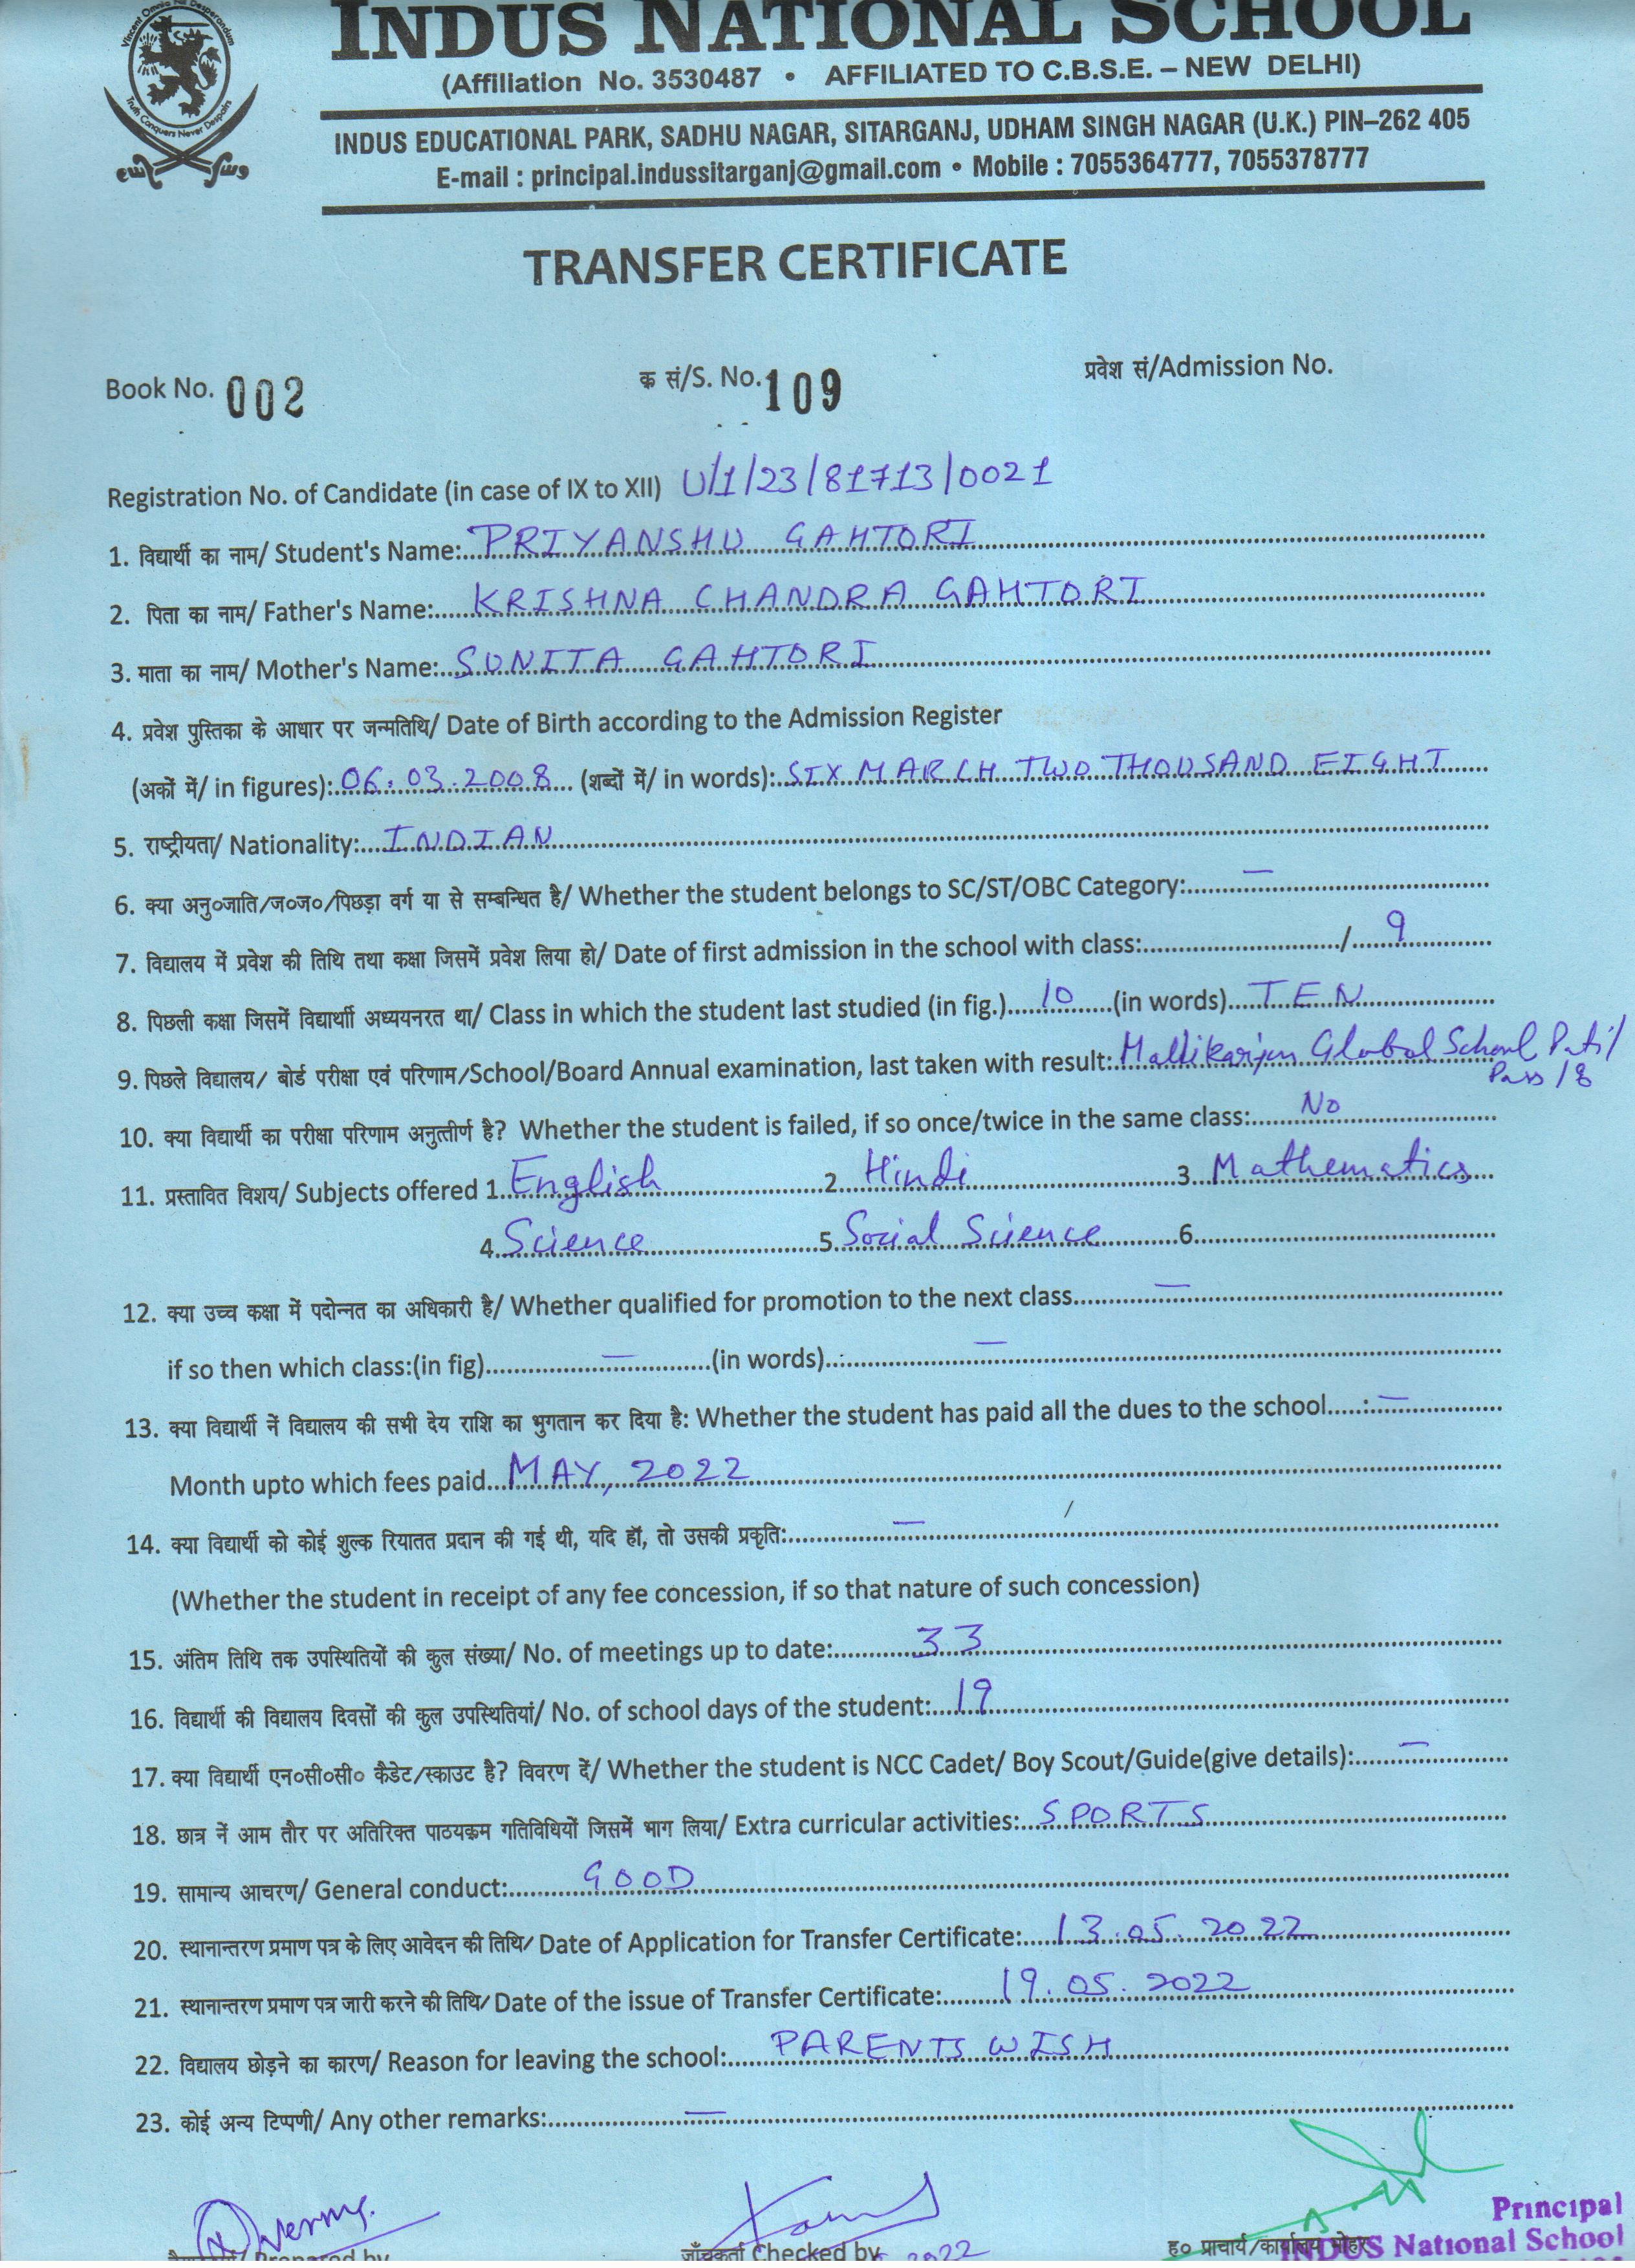 Vincent Omnia Nil Desperandum
Truth Conquers Never Despairs
INDUS NATIONAL SCHOOL
(Affiliation No. 3530487 • AFFILIATED TO C.B.S.E. – NEW DELHI)
INDUS EDUCATIONAL PARK, SADHU NAGAR, SITARGANJ, UDHAM SINGH NAGAR (U.K.) PIN–262 405
E-mail : principal.indussitarganj@gmail.com • Mobile : 7055364777, 7055378777
TRANSFER CERTIFICATE
Book No. 002 क सं/S. No. 109 प्रवेश सं/Admission No.
Registration No. of Candidate (in case of IX to XII) U/1/23/81713/0021
1. विद्यार्थी का नाम/ Student's Name: PRIYANSHU GAHTORI
2. पिता का नाम/ Father's Name: KRISHNA CHANDRA GAHTORI
3. माता का नाम/ Mother's Name: SUNITA GAHTORI
4. प्रवेश पुस्तिका के आधार पर जन्मतिथि/ Date of Birth according to the Admission Register
(अकों में/ in figures): 06.03.2008 (शब्दों में/ in words): SIX MARCH TWO THOUSAND EIGHT
5. राष्ट्रीयता/ Nationality: INDIAN
6. क्या अनु०जाति/ज०ज०/पिछड़ा वर्ग या से सम्बन्धित है/ Whether the student belongs to SC/ST/OBC Category: —
7. विद्यालय में प्रवेश की तिथि तथा कक्षा जिसमें प्रवेश लिया हो/ Date of first admission in the school with class: / 9
8. पिछली कक्षा जिसमें विद्यार्थी अध्ययनरत था/ Class in which the student last studied (in fig.) 10 (in words) TEN
9. पिछले विद्यालय/ बोर्ड परीक्षा एवं परिणाम/School/Board Annual examination, last taken with result: Mallikarjun Global School Pati/
Pass / 8
10. क्या विद्यार्थी का परीक्षा परिणाम अनुत्तीर्ण है? Whether the student is failed, if so once/twice in the same class: No
11. प्रस्तावित विशय/ Subjects offered 1. English 2. Hindi 3. Mathematics
4. Science 5. Social Science 6.
12. क्या उच्च कक्षा में पदोन्नत का अधिकारी है/ Whether qualified for promotion to the next class —
if so then which class:(in fig) — (in words) —
13. क्या विद्यार्थी नें विद्यालय की सभी देय राशि का भुगतान कर दिया है: Whether the student has paid all the dues to the school —
Month upto which fees paid MAY, 2022
14. क्या विद्यार्थी को कोई शुल्क रियातत प्रदान की गई थी, यदि हॉं, तो उसकी प्रकृति: —
(Whether the student in receipt of any fee concession, if so that nature of such concession)
15. अंतिम तिथि तक उपस्थितियों की कुल संख्या/ No. of meetings up to date: 33
16. विद्यार्थी की विद्यालय दिवसों की कुल उपस्थितियां/ No. of school days of the student: 19
17. क्या विद्यार्थी एन०सी०सी० कैडेट/स्काउट है? विवरण दें/ Whether the student is NCC Cadet/ Boy Scout/Guide(give details): —
18. छात्र नें आम तौर पर अतिरिक्त पाठयक्रम गतिविधियों जिसमें भाग लिया/ Extra curricular activities: SPORTS
19. सामान्य आचरण/ General conduct: GOOD
20. स्थानान्तरण प्रमाण पत्र के लिए आवेदन की तिथि/ Date of Application for Transfer Certificate: 13.05.2022
21. स्थानान्तरण प्रमाण पत्र जारी करने की तिथि/ Date of the issue of Transfer Certificate: 19.05.2022
22. विद्यालय छोड़ने का कारण/ Reason for leaving the school: PARENTS WISH
23. कोई अन्य टिप्पणी/ Any other remarks: —
Principal
Prepared by जाँचकर्ता Checked by 2022 ह० प्राचार्य/कार्यालय मोहर INDUS National School